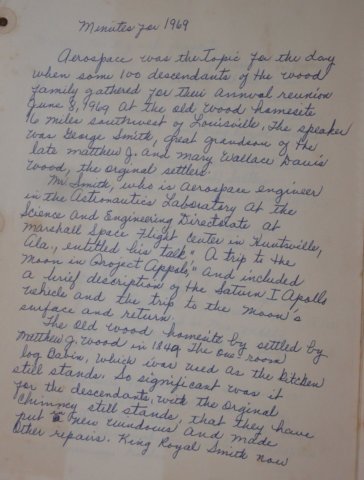 Minutes for 1969
Aerospace was the topic for the day
when some 100 descendants of the wood
family gathered for their annual reunion
June 8, 1969 at the old wood homesite
16 miles southwest of Louisville, The speaker
was George Smith, great grandson of the
late Matthew J. and Mary Wallace Davis
Wood, the orginal settlers.
Mr. Smith, who is aerospace engineer
in the Astronautics Laboratory at the
Science and Engineering Directorate at
Marshall Space Flight Center in Huntsville,
Ala., entitled his talk "A trip to the
moon in Project Appolo," and included
a brief description of the Saturn I Apollo
vehicle and the trip to the moon's
surface and return.
The old wood homesite by settled by
Matthew J. wood in 1849 The one room
log Cabin, which was used as the kitchen
still stands. So significant was it
for the descendants, with the orginal
chimney still stands, that they have
put in new windows and made
other repairs. King Royal Smith now